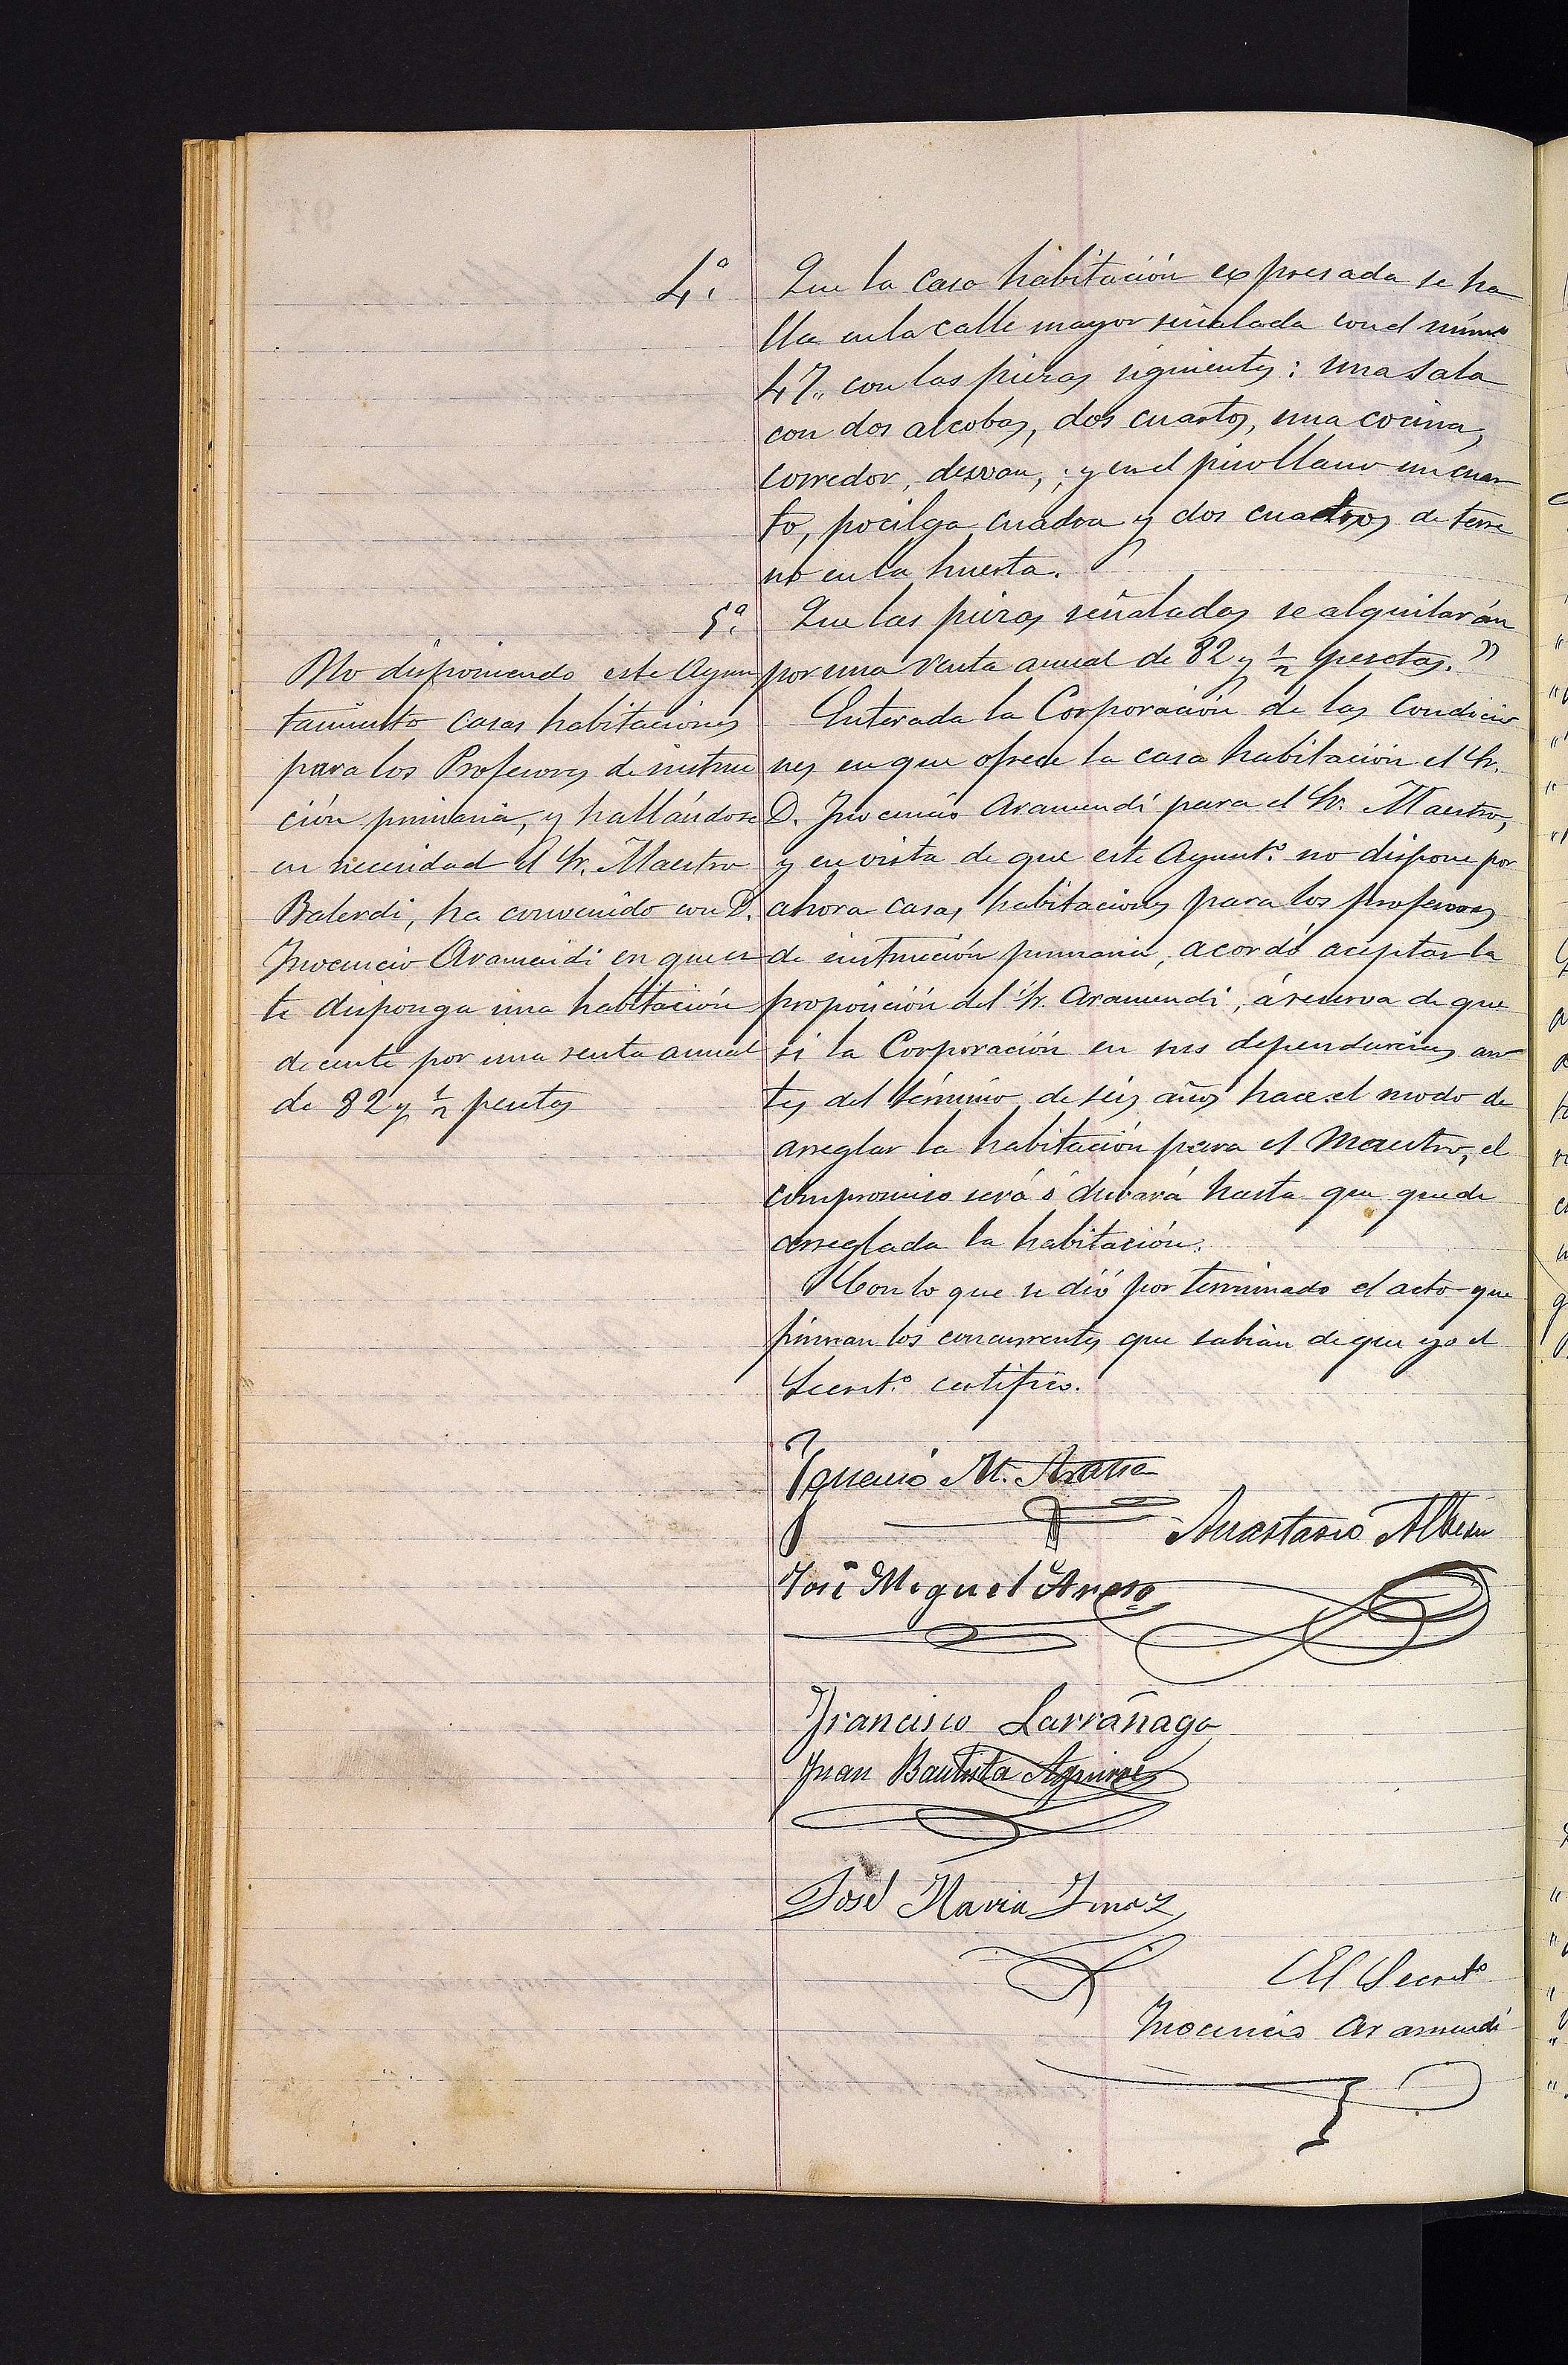 4.ª Que la casa habitación expresada se ha
lla en la calle mayor señalada con el núm.º
47,, con las piezas siguientes: una sala
con dos alcobas, dos cuartos, una cocina,
corredor, desvan, ; y en el piso llano un cuar
to, pocilga cuadra y dos cuadros de terre
no en la huerta.
5.ª Que las piezas señaladas se alquilarán
por una renta anual de 82 y ½ pesetas."
Enterada la Corporación de las condicio
nes en que ofrece la casa habitación el Sr.
D. Inocencio Aramendi para el Sr. Maestro,
y en vista de que este Ayunt.º no dispone por
ahora casas, habitaciones para los profesores
de instrucción primaria, acordó aceptar la
proposición del Sr. Aramendi, á reserva de que
si la Corporación en sus dependencias an
tes del término de seis años hace el modo de
arreglar la habitación para el Maestro, el
compromiso será ó durará hasta que quede
arreglada la habitación.
Con lo que se dió por terminado el acto que
firman los concurrentes que sabían de que yo el
Secret.º certifico.
No disponiendo este Ayun
tamiento casas habitaciones
para los Profesores de instruc
ción primaria, y hallándose
en necesidad el Sr. Maestro
Balerdi, ha convenido con D.
Inocencio Aramendi en que es
te disponga una habitación
decente por una renta anual
de 82 y ½ pesetas
Ignacio M. Aratra
Anastasio Albisu
José Miguel Areso
Francisco Larrañaga
Juan Bautista Aguirre
José Maria Imaz
El Secret.º
Inocencio Aramendi